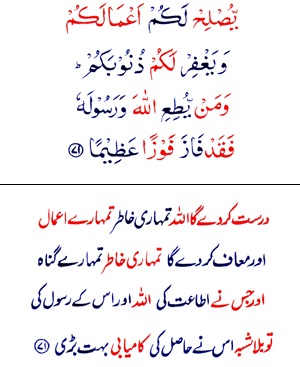 يُّصْلِحْ لَكُمْ اَعْمَالَكُمْ
وَيَغْفِرْ لَكُمْ ذُنُوْبَكُمْ ؕ
وَمَنْ يُّطِعِ اللّٰهَ وَرَسُوْلَهٗ
فَقَدْ فَازَ فَوْزًا عَظِيْمًا ﴿۷۱﴾
درست کردے گا اللہ تمہاری خاطر تمہارے اعمال
اور معاف کردے گا تمہاری خاطر تمہارے گناہ
اور جس نے اطاعت کی اللہ اور اس کے رسول کی
تو بلاشبہ اس نے حاصل کی کامیابی بہت بڑی ﴿۷۱﴾